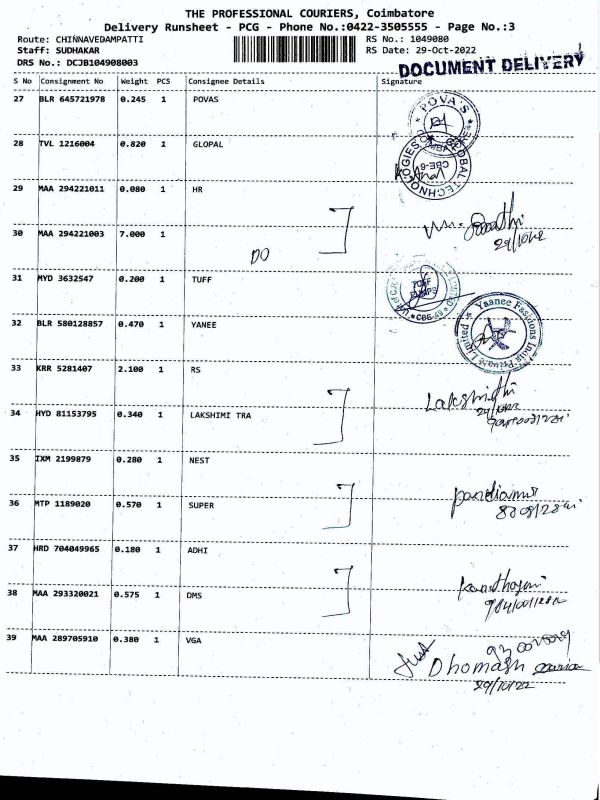 THE PROFESSIONAL COURIERS, Coimbatore
Delivery Runsheet - PCG - Phone No.:0422-3505555 - Page No.:3
Route: CHINNAVEDAMPATTI RS No.: 1049080
Staff: SUDHAKAR RS Date: 29-Oct-2022
DRS No.: DCJB104908003
DOCUMENT DELIVERY
S No Consignment No Weight PCS Consignee Details Signature
27 BLR 645721978 0.245 1 POVAS
POVA'S
28 TVL 1216004 0.820 1 GLOPAL
CBE-6
29 MAA 294221011 0.080 1 HR
30 MAA 294221003 7.000 1
DO
31 MYD 3632547 0.200 1 TUFF
TUFF
CBE-49
32 BLR 580128857 0.470 1 YANEE
Yaanee Fashions India Private Limited
33 KRR 5281407 2.100 1 RS
34 HYD 81153795 0.340 1 LAKSHIMI TRA
35 IXM 2199879 0.280 1 NEST
36 MTP 1189020 0.570 1 SUPER
37 HRD 704049965 0.180 1 ADHI
38 MAA 293320021 0.575 1 DMS
39 MAA 289705910 0.380 1 VGA
29/10/22